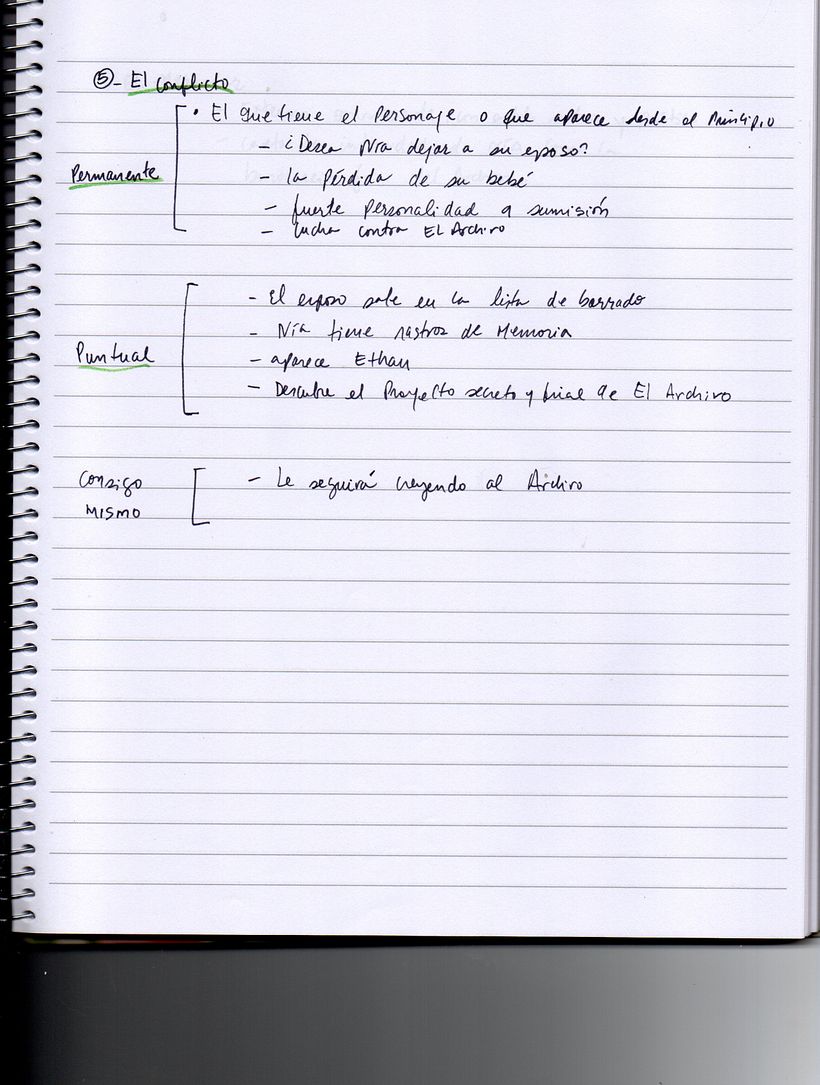 ⑤- El conflicto
• El que tiene el Personaje o que aparece desde el Principio
- ¿Desea Nía dejar a su esposo?
Permanente
- la Pérdida de su bebé
- fuerte personalidad a sumisión
- lucha contra El Archivo
- El esposo sale en la lista de borrado
- Nía tiene rastros de Memoria
Puntual
- aparece Ethan
- Descubre el Proyecto secreto y final de El Archivo
Consigo
- Le seguirá creyendo al Archivo
MISMO